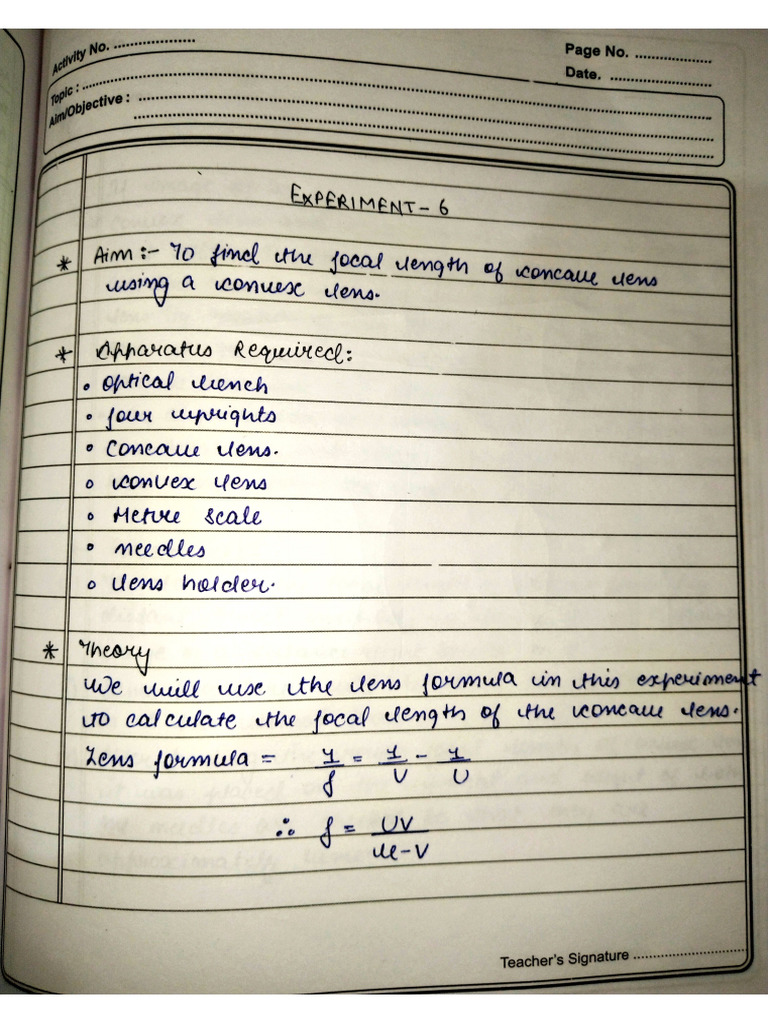 Activity No. ....................
Page No. ....................
Date. ....................
Topic : ....................
Aim/Objective : ....................
EXPERIMENT - 6
* Aim :- To find the focal length of concave lens
using a convex lens.
* Apparatus Required:
• Optical bench
• four uprights
• Concave lens.
• convex lens
• Metre scale
• needles
• lens holder.
* Theory
We will use the lens formula in this experiment
to calculate the focal length of the concave lens.
Lens formula = 1/f = 1/V - 1/U
∴ f = UV/u-V
Teacher's Signature ....................